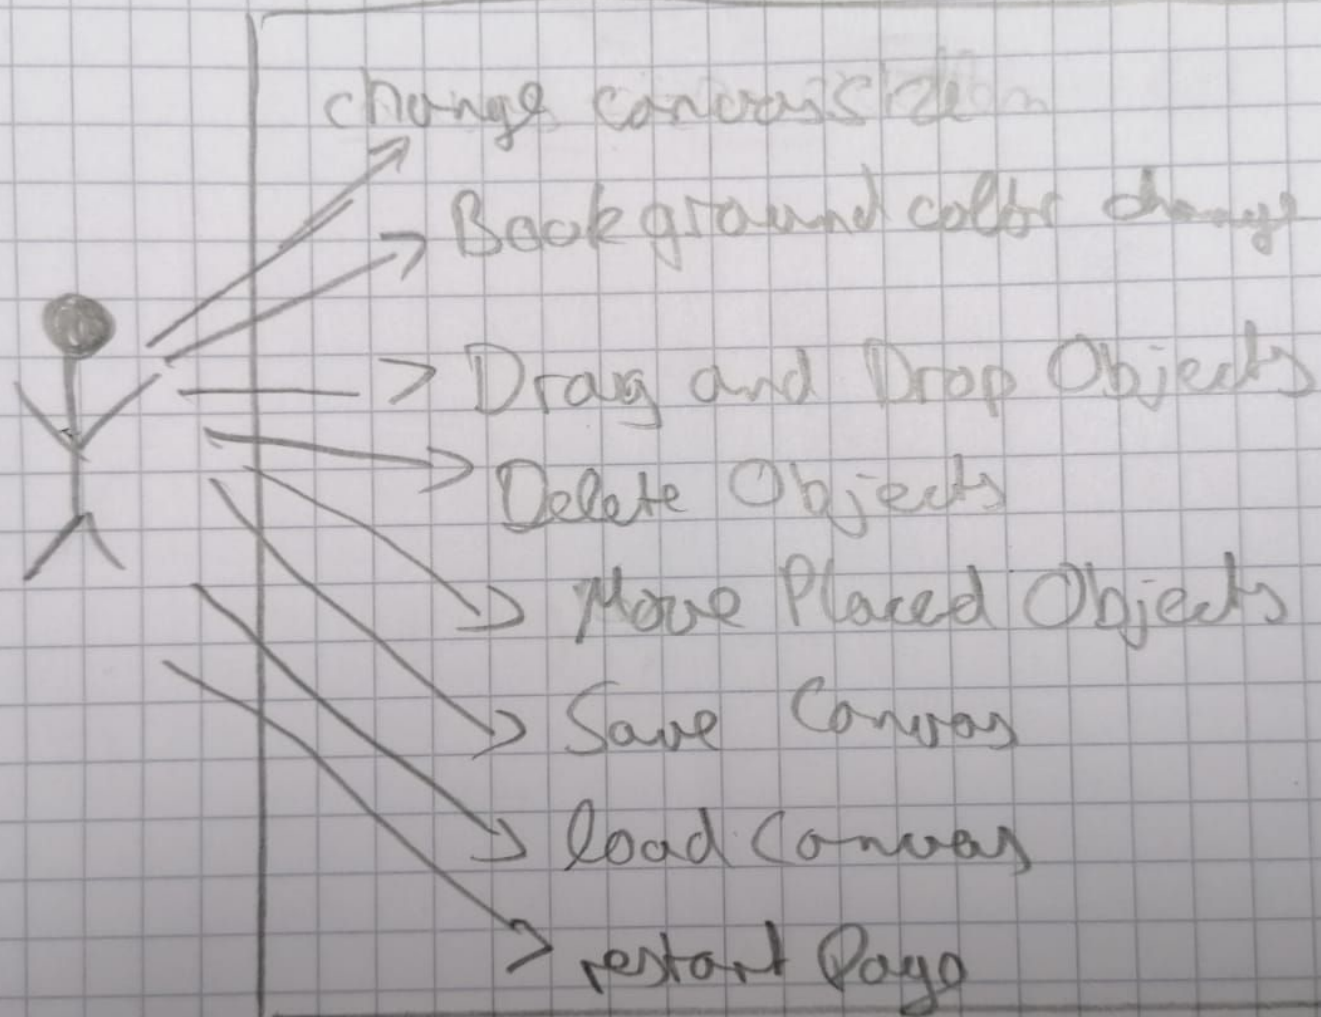 change canvas size
Background color change
Drag and Drop Objects
Delete Objects
Move Placed Objects
Save Canvas
load Canvas
restart Page